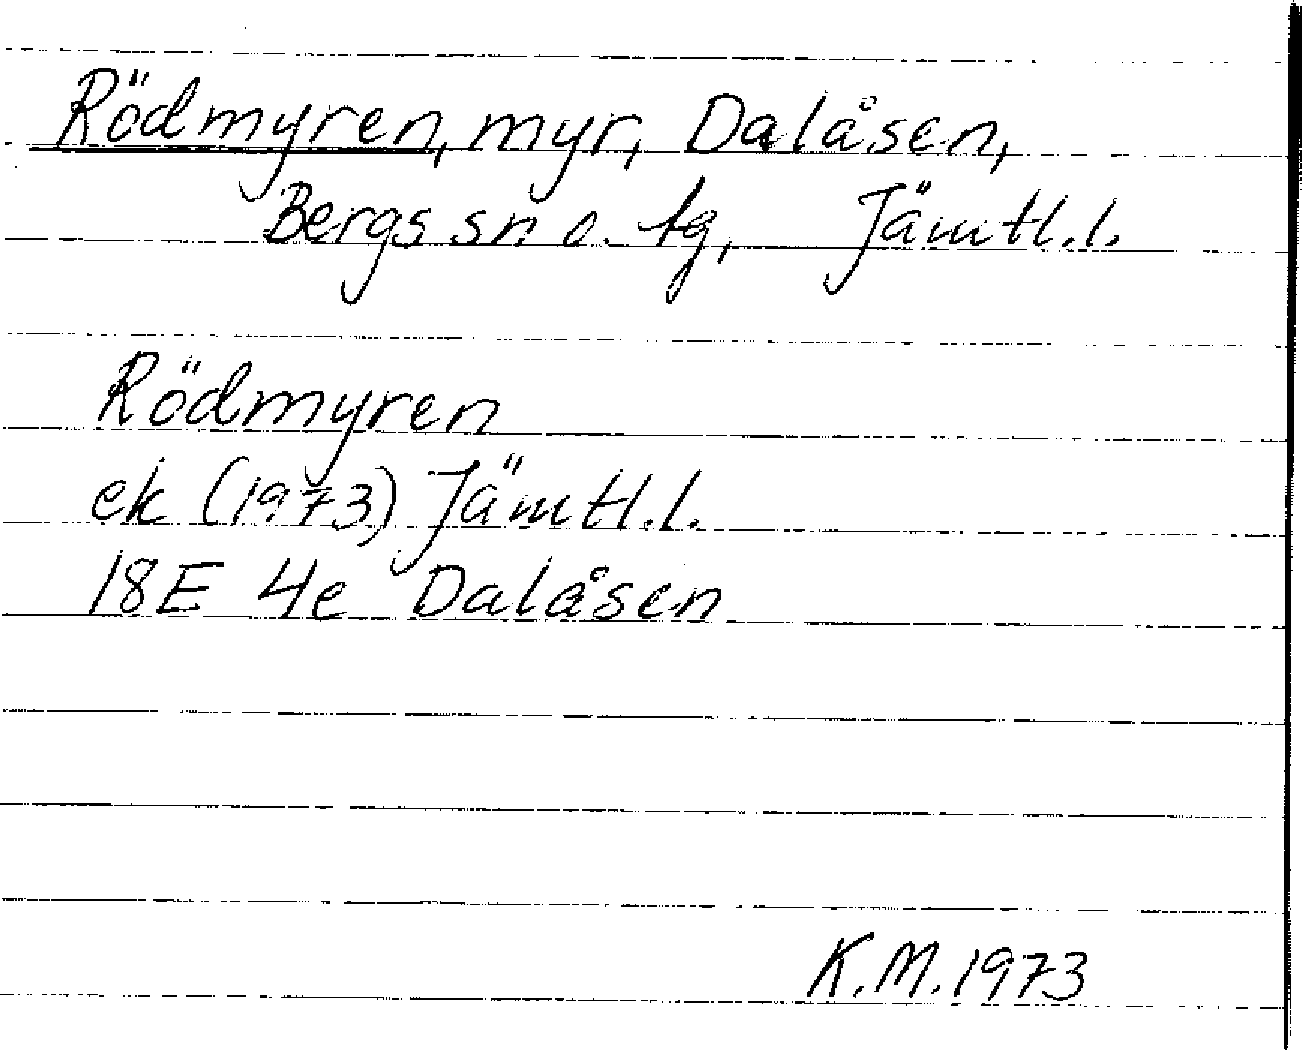 Rödmyren, myr, Dalåsen,
Bergs sn o. tg, Jämtl.l.
Rödmyren
ek (1973) Jämtl.l.
18E 4e Dalåsen
K.M. 1973